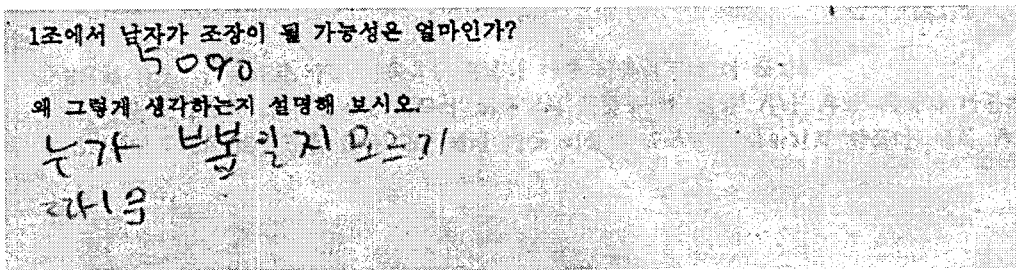 1조에서 남자가 조장이 될 가능성은 얼마인가?
50%
왜 그렇게 생각하는지 설명해 보시오.
누가 뽑힐지 모르기
때문